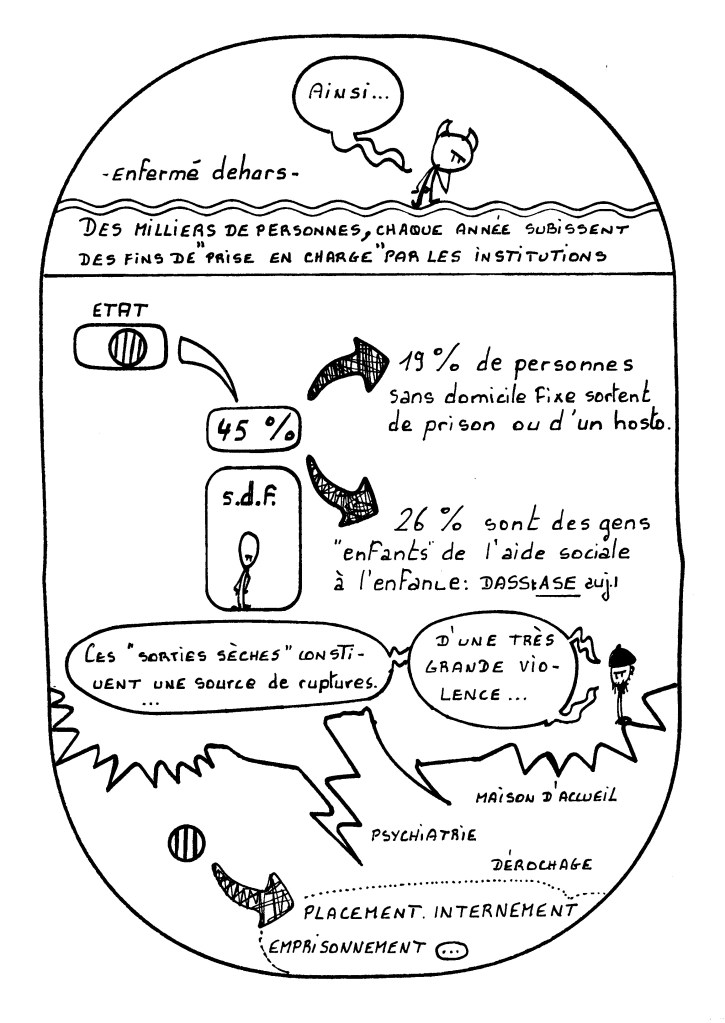 Ainsi...
- Enfermé dehars -
DES MILLIERS DE PERSONNES, CHAQUE ANNÉE SUBISSENT
DES FINS DE "PRISE EN CHARGE" PAR LES INSTITUTIONS
ETAT
19 % de personnes
sans domicile fixe sortent
de prison ou d'un hosto.
45 %
s.d.f.
26 % sont des gens
"enfants" de l'aide sociale
à l'enfance: DASS:ASE auj.!
CES "SORTIES SÈCHES" CONSTI-
UENT UNE SOURCE de RUPTURES.
...
D'UNE TRÈS
GRANDE VIO-
LENCE ...
MAISON D'ACCUEIL
PSYCHIATRIE
DÉROCHAGE
PLACEMENT. INTERNEMENT
EMPRISONNEMENT (...)